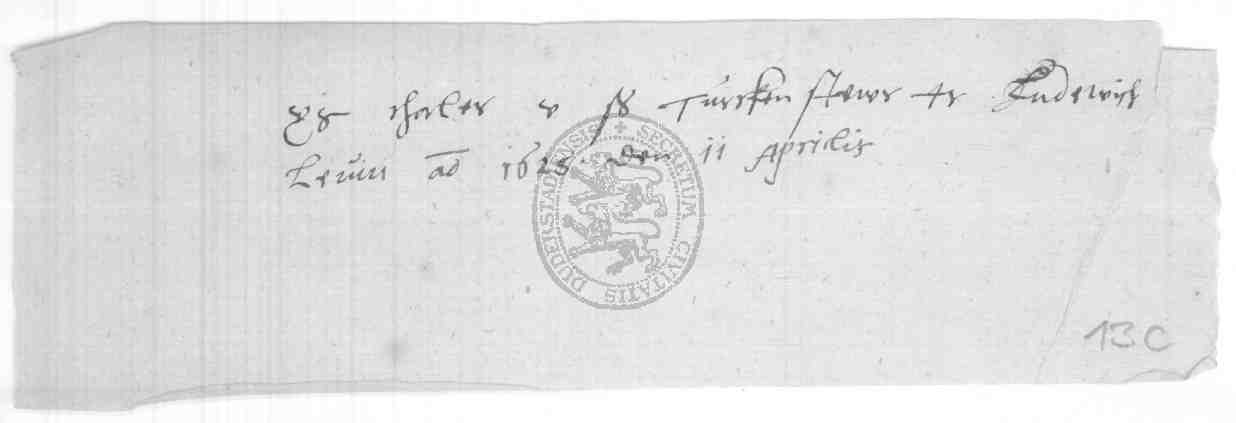 thaler v ß Turcken stewr Ludewich
Levin ao 1625 den 11 Aprilis
SECRETUM CIVITATIS DUDERSTADENSIS
13C